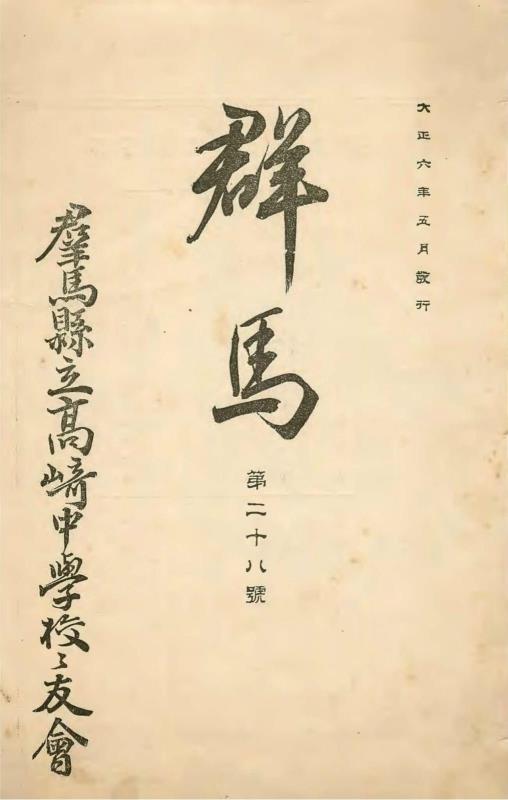 大正六年五月發行
群馬
第二十八號
羣馬縣立高崎中學校々友會